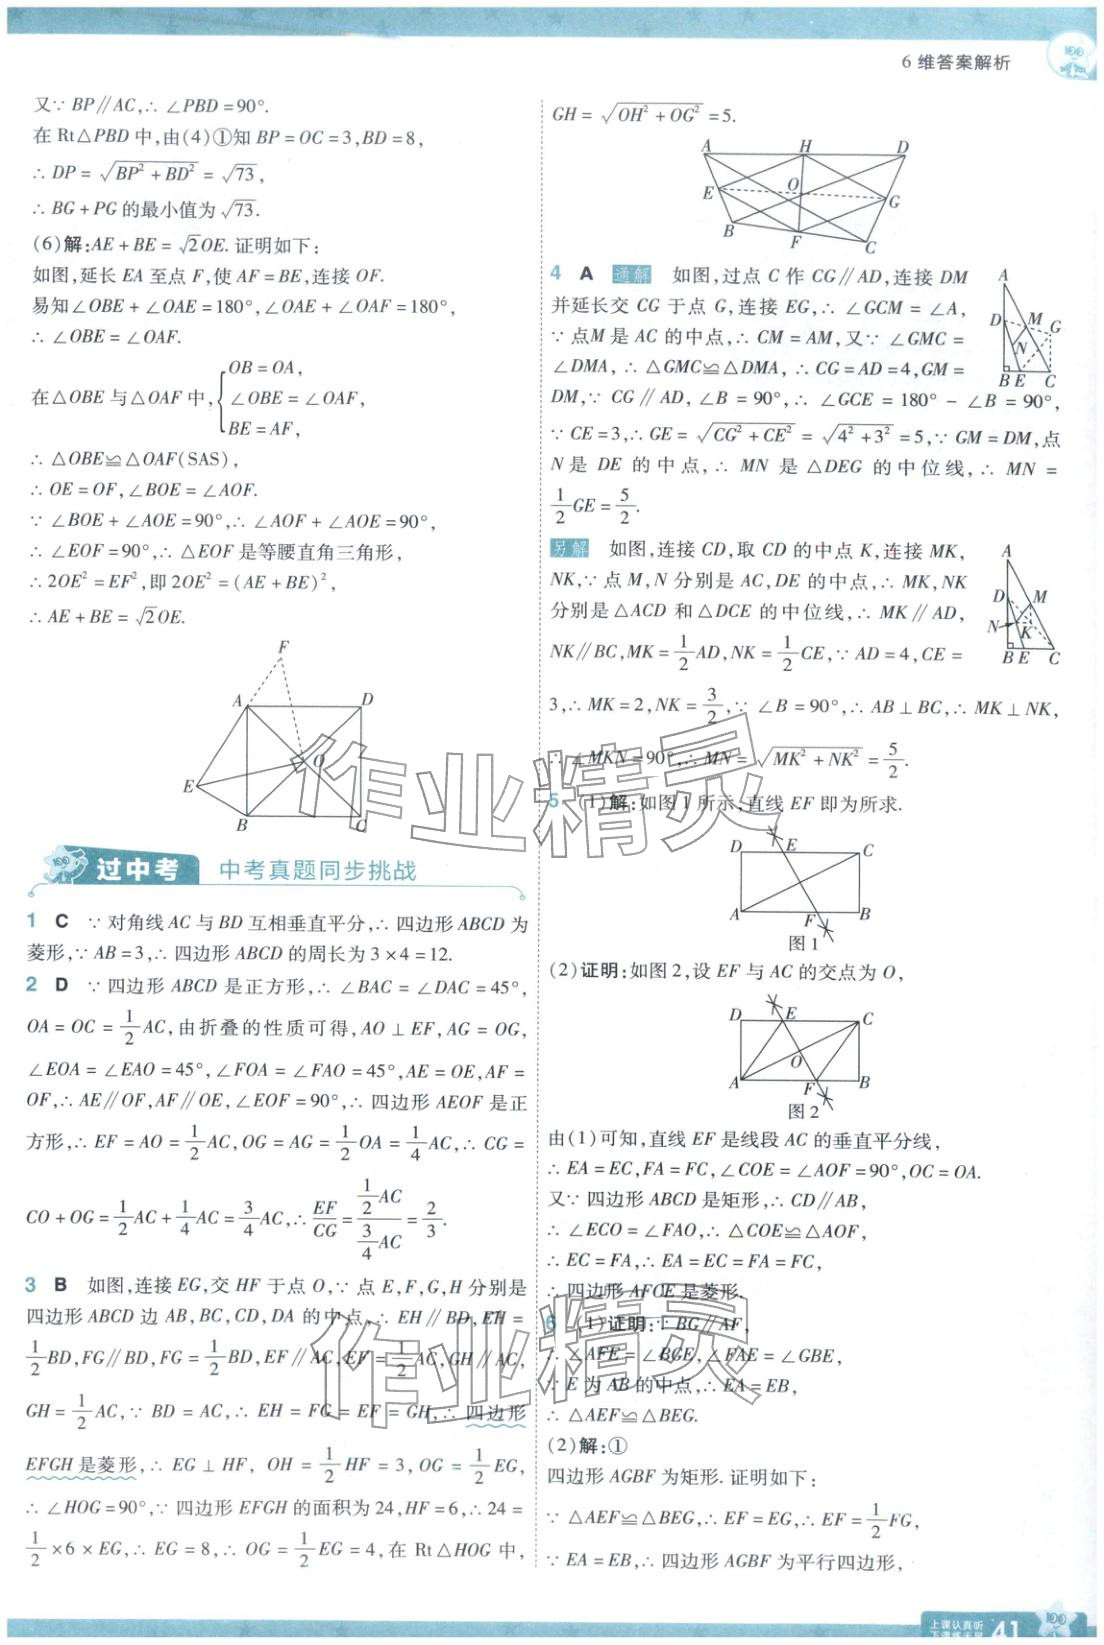 6 维答案解析
又∵ BP∥AC,∴ ∠PBD=90°.
在 Rt△PBD 中,由(4)①知 BP=OC=3,BD=8,
∴ DP=√(BP²+BD²)=√73,
∴ BG+PG 的最小值为√73.
(6)解:AE+BE=√2OE.证明如下:
如图,延长 EA 至点 F,使 AF=BE,连接 OF.
易知∠OBE+∠OAE=180°,∠OAE+∠OAF=180°,
∴ ∠OBE=∠OAF.
在△OBE 与△OAF 中,{OB=OA,
∠OBE=∠OAF,
BE=AF,
∴ △OBE≌△OAF(SAS),
∴ OE=OF,∠BOE=∠AOF.
∵ ∠BOE+∠AOE=90°,∴ ∠AOF+∠AOE=90°,
∴ ∠EOF=90°,∴ △EOF 是等腰直角三角形,
∴ 2OE²=EF²,即 2OE²=(AE+BE)²,
∴ AE+BE=√2OE.
F
A D
E O
B C
过中考 中考真题同步挑战
1 C ∵ 对角线 AC 与 BD 互相垂直平分,∴ 四边形 ABCD 为
菱形,∵ AB=3,∴ 四边形 ABCD 的周长为 3×4=12.
2 D ∵ 四边形 ABCD 是正方形,∴ ∠BAC=∠DAC=45°,
OA=OC=1/2AC,由折叠的性质可得,AO⊥EF,AG=OG,
∠EOA=∠EAO=45°,∠FOA=∠FAO=45°,AE=OE,AF=
OF,∴ AE∥OF,AF∥OE,∠EOF=90°,∴ 四边形 AEOF 是正
方形,∴ EF=AO=1/2AC,OG=AG=1/2OA=1/4AC,∴ CG=
CO+OG=1/2AC+1/4AC=3/4AC,∴ EF/CG=(1/2AC)/(3/4AC)=2/3.
3 B 如图,连接 EG,交 HF 于点 O,∵ 点 E,F,G,H 分别是
四边形 ABCD 边 AB,BC,CD,DA 的中点,∴ EH∥BD,EH=
1/2BD,FG∥BD,FG=1/2BD,EF∥AC,EF=1/2AC,GH∥AC,
GH=1/2AC,∵ BD=AC,∴ EH=FG=EF=GH,∴ 四边形
EFGH 是菱形,∴ EG⊥HF, OH=1/2HF=3,OG=1/2EG,
∴ ∠HOG=90°,∵ 四边形 EFGH 的面积为 24,HF=6,∴ 24=
1/2×6×EG,∴ EG=8,∴ OG=1/2EG=4,在 Rt△HOG 中,
GH=√(OH²+OG²)=5.
A H D
E O G
B F C
4 A 通解 如图,过点 C 作 CG∥AD,连接 DM
并延长交 CG 于点 G,连接 EG,∴ ∠GCM=∠A,
∵ 点M 是 AC 的中点,∴ CM=AM,又∵ ∠GMC=
∠DMA,∴ △GMC≌△DMA,∴ CG=AD=4,GM=
DM,∵ CG∥AD,∠B=90°,∴ ∠GCE=180°-∠B=90°,
∵ CE=3,∴ GE=√(CG²+CE²)=√(4²+3²)=5,∵ GM=DM,点
N是 DE 的中点,∴ MN 是△DEG 的中位线,∴ MN=
1/2GE=5/2.
A
D M G
N
B E C
另解 如图,连接 CD,取 CD 的中点 K,连接 MK,
NK,∵ 点 M,N 分别是 AC,DE 的中点,∴ MK,NK
分别是△ACD 和△DCE 的中位线,∴ MK∥AD,
NK∥BC,MK=1/2AD,NK=1/2CE,∵ AD=4,CE=
3,∴ MK=2,NK=3/2,∵ ∠B=90°,∴ AB⊥BC,∴ MK⊥NK,
∴ ∠MKN=90°,∴ MN=√(MK²+NK²)=5/2.
A
D M
N K
B E C
5 (1)解:如图 1 所示,直线 EF 即为所求.
D E C
A F B
图 1
(2)证明:如图 2,设 EF 与 AC 的交点为 O,
D E C
O
A F B
图 2
由(1)可知,直线 EF 是线段 AC 的垂直平分线,
∴ EA=EC,FA=FC,∠COE=∠AOF=90°,OC=OA.
又∵ 四边形 ABCD 是矩形,∴ CD∥AB,
∴ ∠ECO=∠FAO,∴ △COE≌△AOF,
∴ EC=FA,∴ EA=EC=FA=FC,
∴ 四边形 AFCE 是菱形.
6 (1)证明:∵ BG∥AF,
∴ ∠AFE=∠BGE,∠FAE=∠GBE,
∵ E 为 AB 的中点,∴ EA=EB,
∴ △AEF≌△BEG.
(2)解:①
四边形 AGBF 为矩形.证明如下:
∵ △AEF≌△BEG,∴ EF=EG,∴ EF=1/2FG,
∵ EA=EB,∴ 四边形 AGBF 为平行四边形,
作业精灵
作业精灵
上课认真听
41